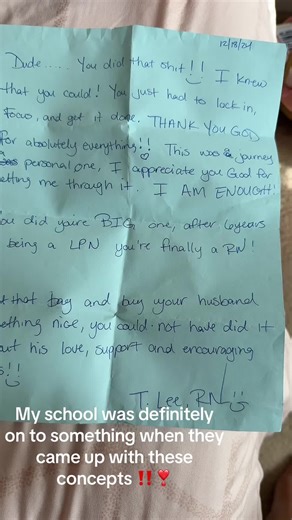 12/18/24
Dude..... You did that shit!!
I knew
that you could! You just had to lock in,
focus, and get it done. THANK YOU GOD
for absolutely everything!! This was a journey
personal one, I appreciate you God for
etting me through it. I AM ENOUGH!
ou did you're BIG one, after 6 years
being a LPN you're finally a RN!
that bag and buy your husband
ething nice, you could not have did it
out his love, support and encouraging
s!!
T. Lee, RN
My school was definitely
on to something when they
came up with these
concepts ‼️❣️